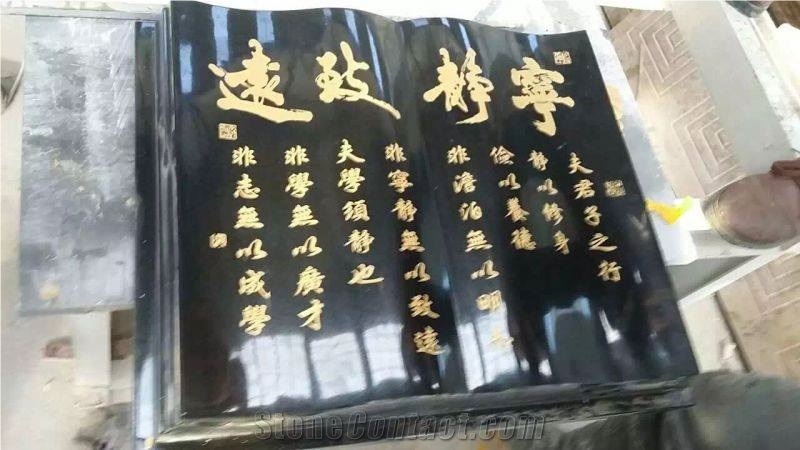 寧靜致遠
夫君子之行
靜以修身
儉以養德
非澹泊無以明志
非寧靜無以致遠
夫學須靜也
非學無以廣才
非志無以成學
StoneContact.com